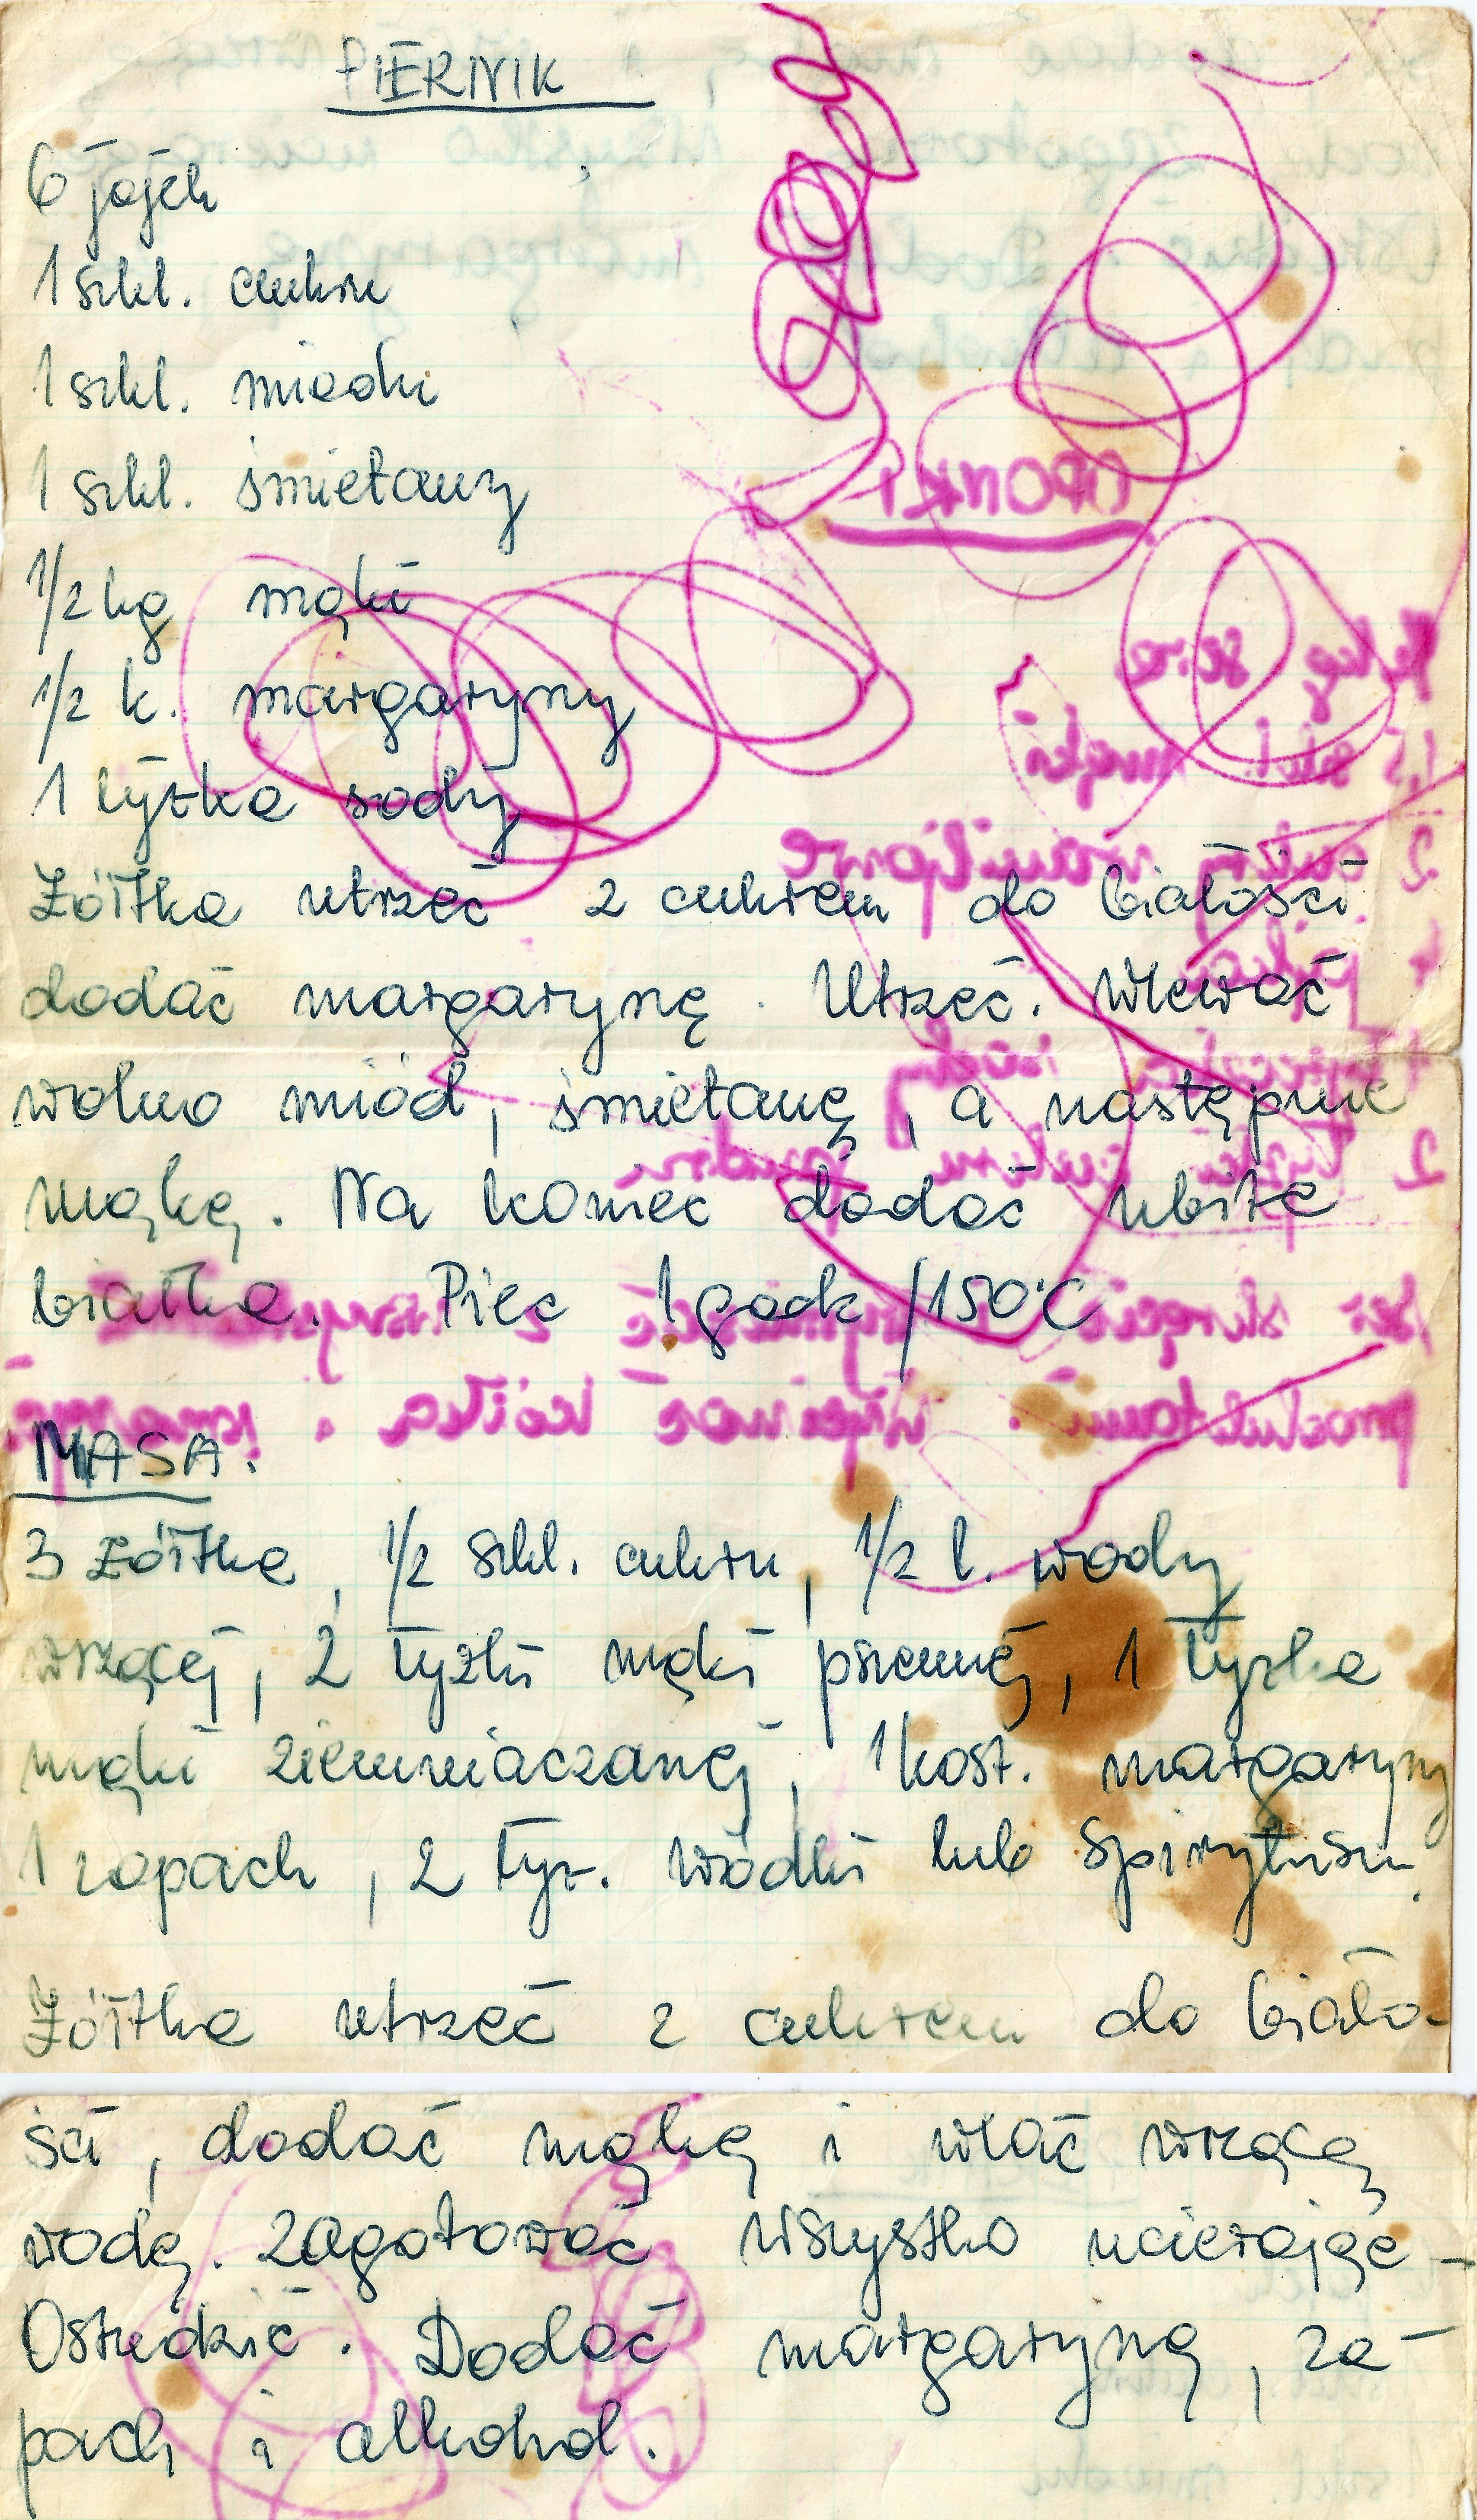 PIERNIK
6 jajek
1 szkl. cukru
1 szkl. miodu
1 szkl. śmietany
1/2 kg mąki
1/2 k. margaryny
1 łyżka sody
Żółtka utrzeć z cukrem do białości
dodać margarynę. Utrzeć. Wlewać
wolno miód, śmietanę, a następnie
mąkę. Na koniec dodać ubite
białka. Piec 1 godz /150°C
MASA.
3 żółtka, 1/2 szkl. cukru, 1/2 l. wody
wrzącej, 2 łyżki mąki pszennej, 1 łyżka
mąki ziemniaczanej, 1 kost. margaryny
1 zapach, 2 łyż. wódki lub spirytusu.
Żółtka utrzeć z cukrem do biało-
ści, dodać mąkę i wlać wrzącą
wodę. Zagotować wszystko ucierając -
Ostudzić. Dodać margarynę, za-
pach i alkohol.
OPONKI